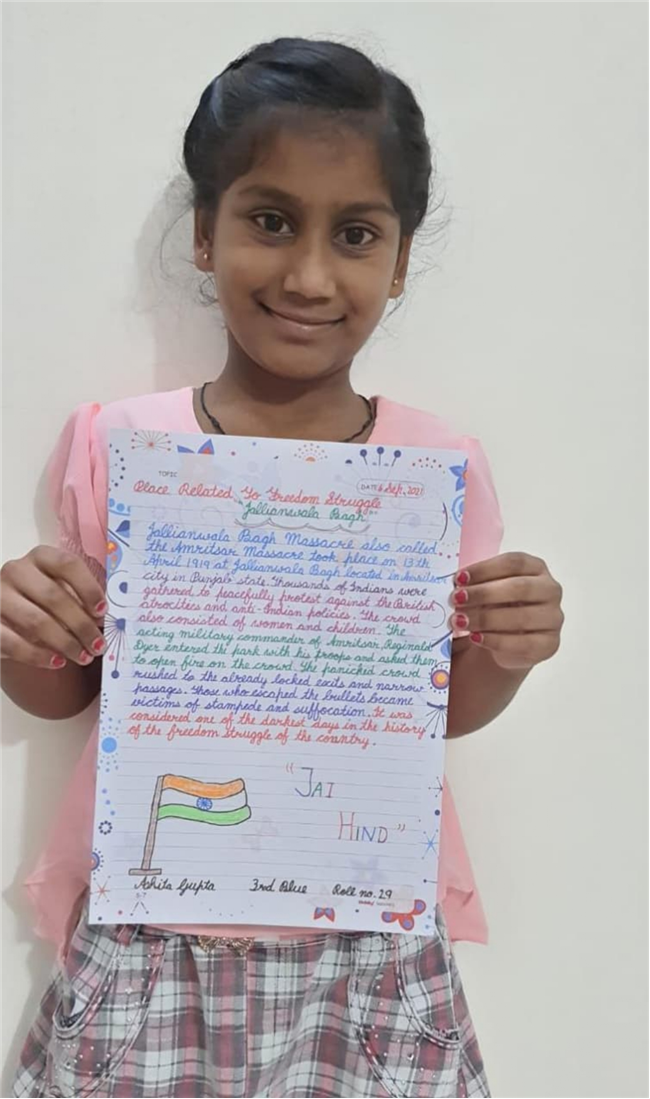 TOPIC
DATE 6 Sep, 2021
Place Related To Freedom Struggle
"Jallianwala Bagh"
Jallianwala Bagh Massacre also called
the Amritsar Massacre took place on 13th
April 1919 at Jallianwala Bagh located in Amritsar
city in Punjab state. Thousands of Indians were
gathered to peacfully protest against the British
atrocities and anti-Indian policies. The crowd
also consisted of women and children. The
acting military commander of Amritsar, Reginald
Dyer entered the park with his troops and asked them
to open fire on the crowd. The panicked crowd
rushed to the already locked exits and narrow
passages. Those who escaped the bullets became
victims of stampede and suffocation. It was
considered one of the darkest days in the history
of the freedom struggle of the country.
"JAI
HIND"
Ashita Gupta 3rd Blue Roll no. 29